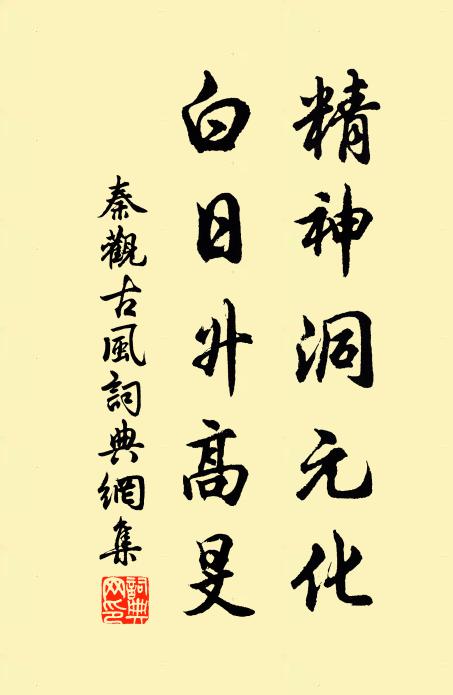 精神洞元化
白日升高旻
秦觀古風詞典網集
詞典網印